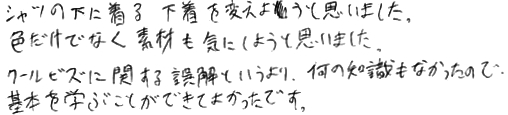 シャツの下に着る下着を変えようと思いました。
色だけでなく素材も気にしようと思いました。
クールビズに関する誤解というより、何の知識もなかったので
基本を学ぶことができてよかったです。